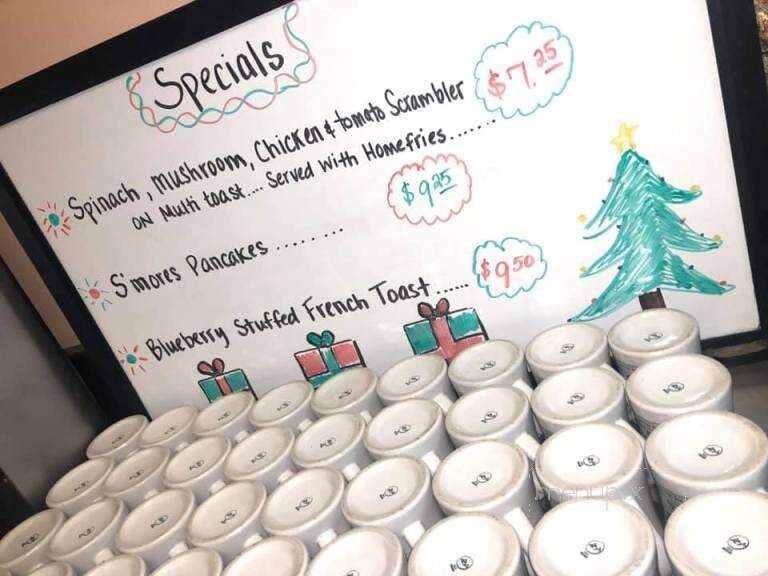 Specials
Spinach, mushroom, Chicken & tomato Scrambler $7.25
ON Multi toast.... Served with Homefries.......
S'mores Pancakes ........ $9.25
Blueberry Stuffed French Toast...... $9.50